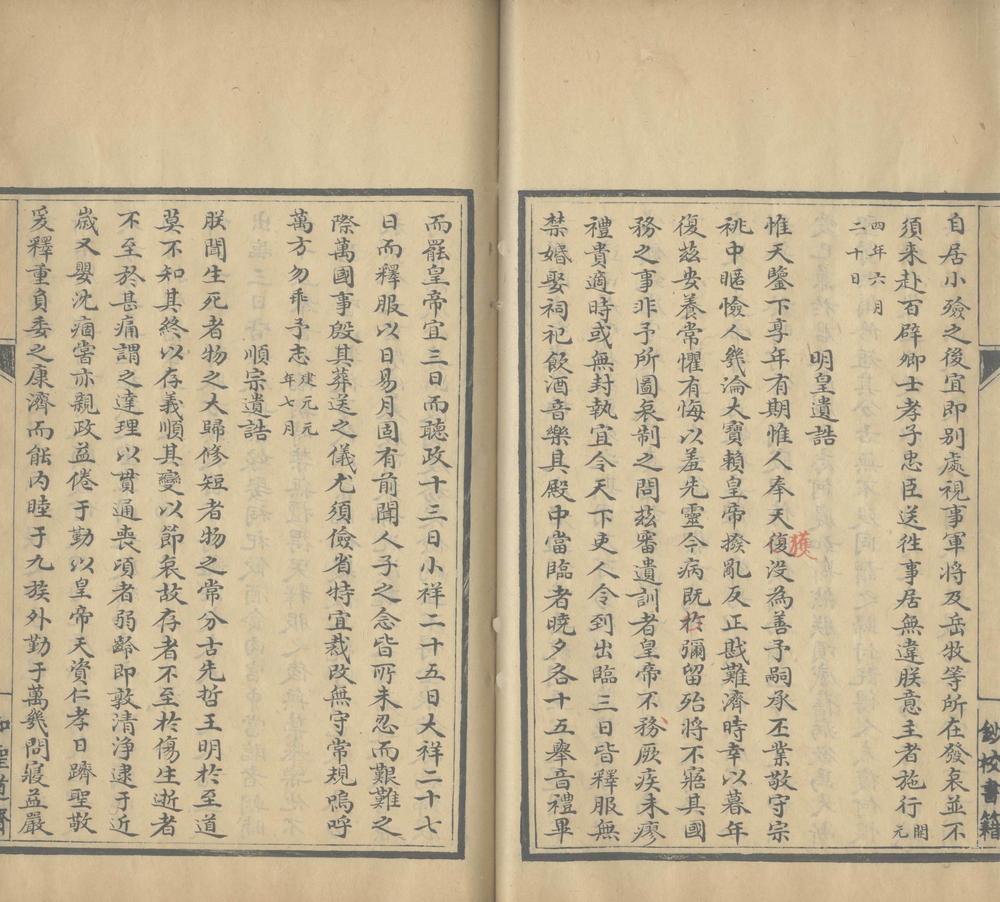 自居小殮之後宜即別處視事軍將及岳牧等所在發哀並不
須来赴百辟卿士孝子忠臣送徃事居無違朕意主者施行開元
四年六月二十日
明皇遺誥
惟天鑒下享年有期惟人奉天復没為善予嗣承丕業敬守宗
獲
祧中區憸人幾淪大寶賴皇帝撥亂反正戡難濟時幸以暮年
復兹安養常懼有悔以羞先靈今病既於彌留殆將不寤其國
務之事非予所圖哀制之間兹審遺訓者皇帝不務厥疾未瘳
禮貴適時或無封執宜令天下吏人令到出臨三日皆釋服無
禁婚娶祠祀飲酒音樂具殿中當臨者曉夕各十五舉音禮畢
而罷皇帝宜三日而聽政十三日小祥二十五日大祥二十七
日而釋服以日易月固有前聞人子之念皆所未忍而艱難之
際萬國事殷其葬送之儀尤須儉省特宜裁改無守常規嗚呼
萬方勿乖予志建元元年七月
順宗遺誥
朕聞生死者物之大歸修短者物之常分古先哲王明於至道
莫不知其終以存義順其變以節哀故存者不至於傷生逝者
不至於甚痛謂之達理以貫通喪頃者弱齡即敦清淨逮于近
歲又嬰沈痼嘗亦親政益倦于勤以皇帝天資仁孝日躋聖敬
爰釋重負委之康濟而能内睦于九族外勤于萬幾問寢益嚴
鈔校書籍
聖道齋